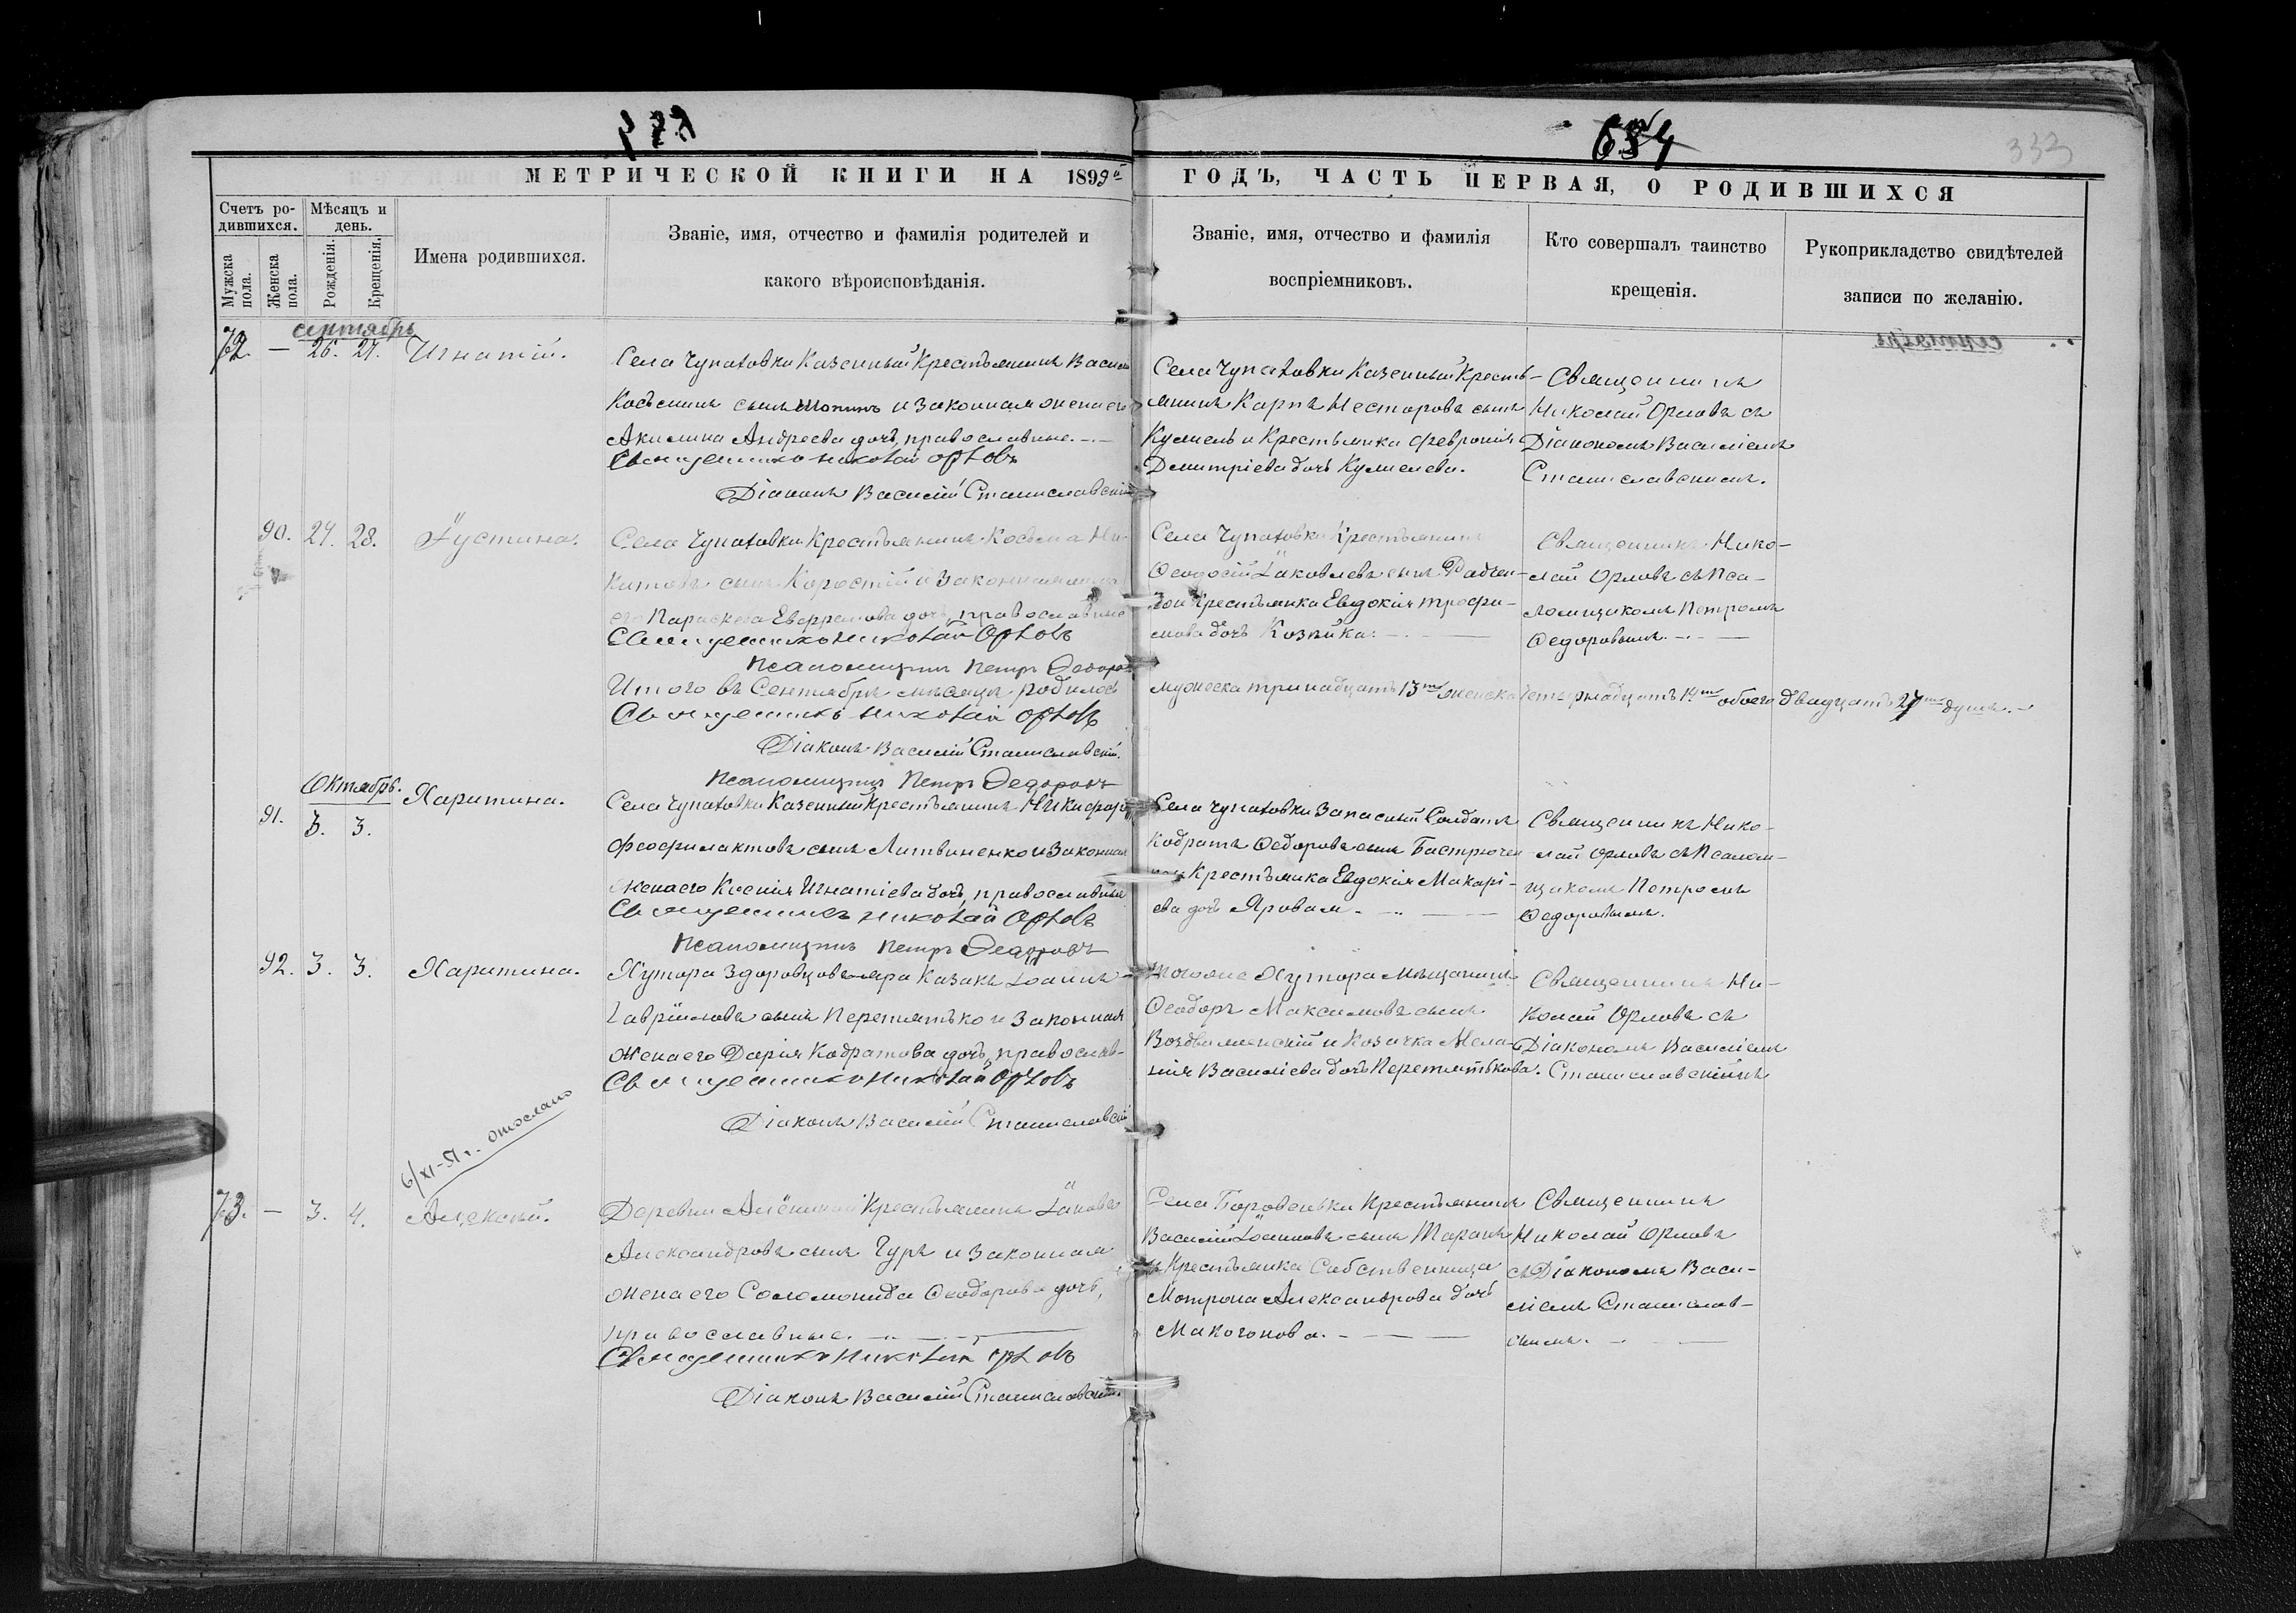 654
333
МЕТРИЧЕСКОЙ КНИГИ НА 1899й ГОДЪ, ЧАСТЬ ПЕРВАЯ, О РОДИВШИХСЯ
Счетъ ро-
дившихся.
Мужска
пола.
Женска
пола.
Мѣсяцъ и
день.
Рожденія.
Крещенія.
Имена родившихся.
Званіе, имя, отчество и фамилія родителей и
какого вѣроисповѣданія.
Званіе, имя, отчество и фамилія
воспріемниковъ.
Кто совершалъ таинство
крещенія.
Рукоприкладство свидѣтелей
записи по желанію.
сентябрь
72. — 26. 27. Игнатій.
Села Чупаховки Казенный Крестьянинъ Василій
Косьминъ сынъ и законная жена его
Акилина Андреева дочь, православные.
Священникъ Николай Орловъ
Діаконъ Василій Станиславскій
Села Чупаховки Казенный Кресть-
янинъ Карпъ Несторовъ сынъ
и Крестьянка Февронія
Димитріева дочь
Священникъ
Николай Орловъ съ
Діакономъ Василіемъ
Станиславскимъ.
90. 27. 28. Іустина.
Села Чупаховки Крестьянинъ Косьма Ни-
китовъ сынъ Коростій и законная жена
его Параскева Евфремова дочь, православные
Священникъ Николай Орловъ
Псаломщикъ Петръ Федоровъ
Села Чупаховки Крестьянинъ
Ѳеодосій Іаковлевъ сынъ Радчен-
ко и Крестьянка Евдокія Трофи-
мова дочь Козпйка.
Священникъ Нико-
лай Орловъ съ Пса-
ломщикомъ Петромъ
Ѳедоровымъ.
Итого въ Сентябрѣ мѣсяцѣ родилось мужеска тринадцать 13ть женска четырнадцать 14ть обоего двадцать 27мь душъ.
Священникъ Николай Орловъ
Діаконъ Василій Станиславскій.
Псаломщикъ Петръ Федоровъ
Октябрь.
91. 3. 3. Харитина.
Села Чупаховки Казенный Крестьянинъ Никифоръ
Феофилактовъ сынъ Литвиненко и законная
жена его Ксенія Игнатіева дочь, православные
Священникъ Николай Орловъ
Псаломщикъ Петръ Федоровъ
Села Чупаховки Запасный Солдатъ
Кодратъ Ѳеодоровъ сынъ Бастрючен-
ко и Крестьянка Евдокія Макарі-
ева дочь Яровая.
Священникъ Нико-
лай Орловъ съ Псалом-
щикомъ Петромъ
Ѳедоровымъ.
92. 3. 3. Харитина.
Хутора Здоровцова яра Казакъ Іоаннъ
Гавріиловъ сынъ Перетятько и законная
жена его Дарія Кодратова дочь, православ-
Священникъ Николай Орловъ
Діаконъ Василій Станиславскій
Хутора Мѣщанинъ
Ѳеодоръ Максимовъ сынъ
Воздвиженскій и Козачка Мела-
нія Василіева дочь Перетятькова.
Священникъ Ни-
колай Орловъ съ
Діакономъ Василіемъ
Станиславскимъ
6/XI-51 г. отослано
73. — 3. 4. Алексій.
Деревни Крестьянинъ Іаковъ
Александровъ сынъ Чуръ и законная
жена его Соломонида Ѳеодорова дочь,
православные.
Священникъ Николай Орловъ
Діаконъ Василій Станиславскій.
Села Боровеньки Крестьянинъ
Василій Іоанновъ сынъ Таранъ
и Крестьянка Собственница
Мотрона Александрова дочь
Макогонова.
Священникъ
Николай Орловъ
съ Діакономъ Васи-
ліемъ Станислав-
скимъ.